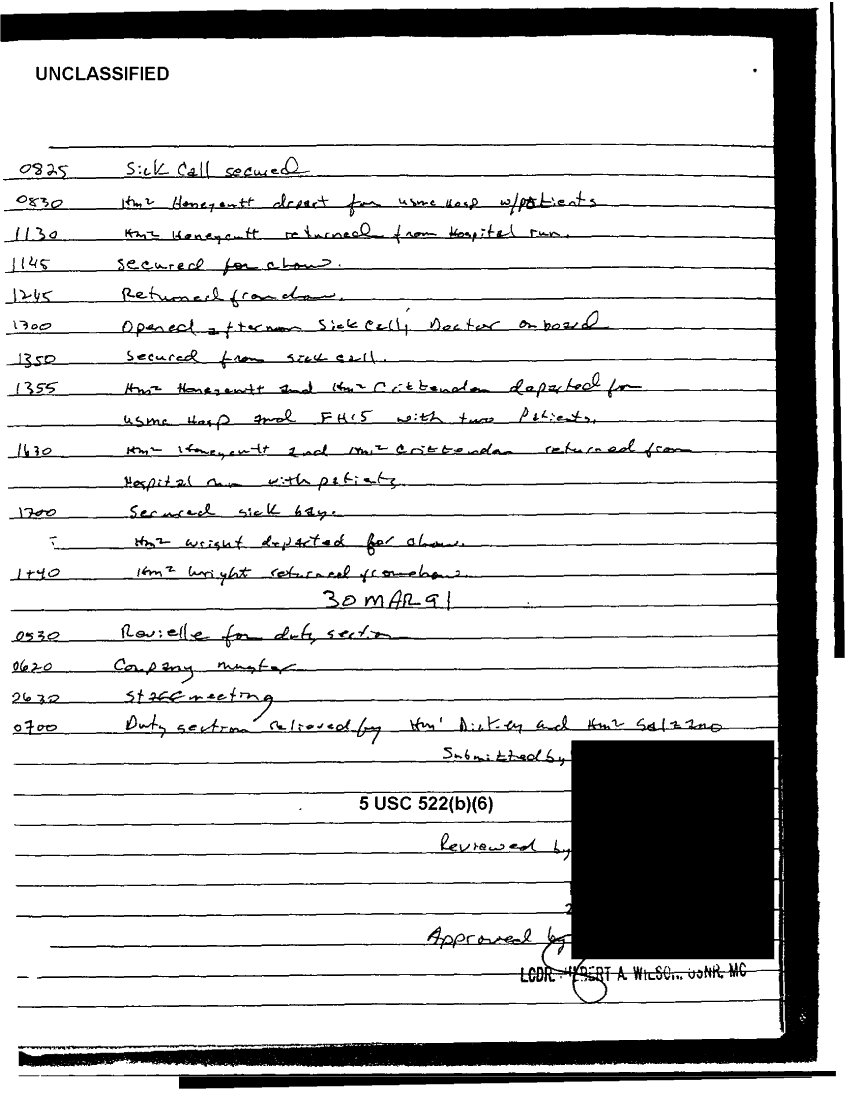 UNCLASSIFIED
0825 Sick Call secured
0830 HM2 Honeycutt depart for USMC Hosp w/patients
1130 HM2 Honeycutt returned from Hospital run.
1145 Secured for chow.
1245 Returned from chow.
1300 Opened afternoon Sick Call, Doctor onboard
1350 Secured from sick call.
1355 HM2 Honeycutt and HM2 Crittendon departed for
USMC Hosp and FH15 with two Patients.
1630 HM2 Honeycutt and HM2 Crittendon returned from
Hospital run with patients.
1700 Secured sick bay.
HM2 Wright departed for chow.
1740 HM2 Wright returned from chow.
30 MAR 91
0530 Revielle for duty section
0620 Company muster
0630 Staff meeting
0700 Duty section relieved by HM1 Dickey and HM2
Submitted by
5 USC 522(b)(6)
Reviewed by
Approved by
LCDR A. WILSON, USNR, MC